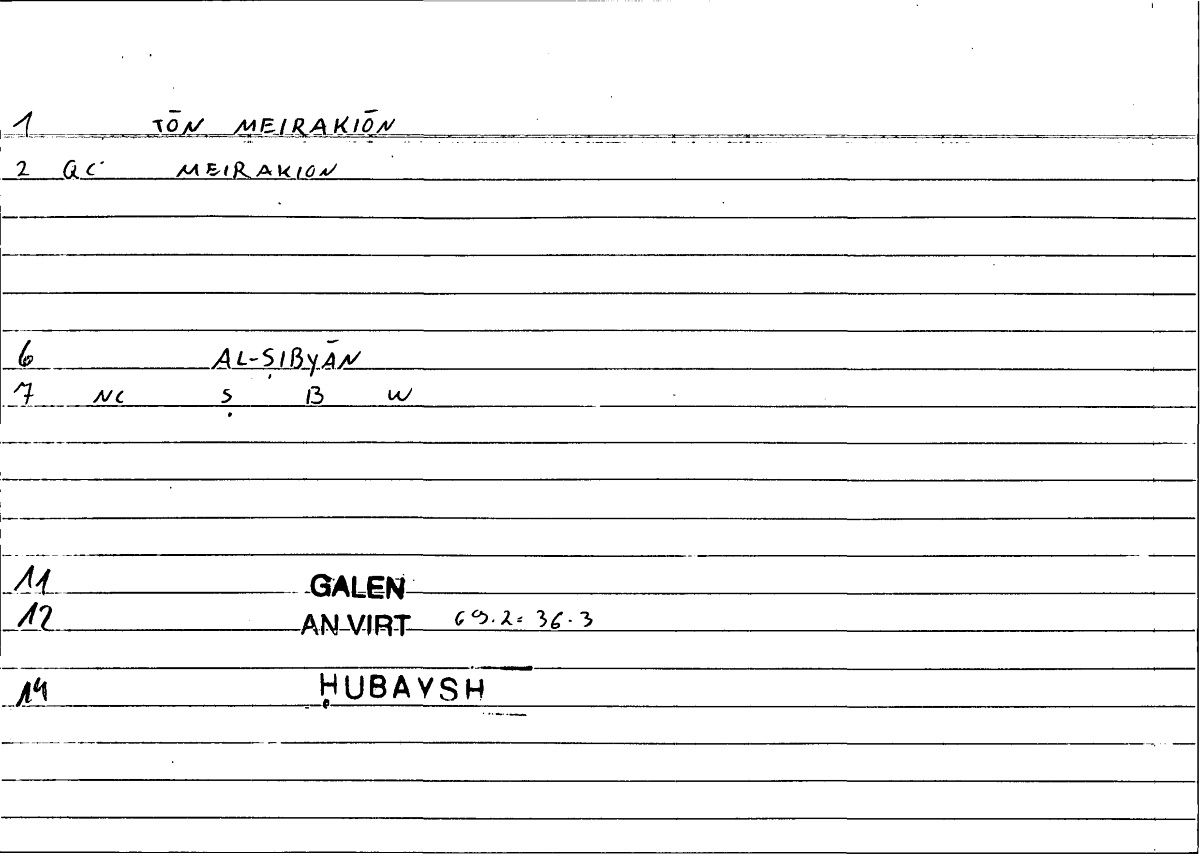 1 TŌN MEIRAKIŌN
2 QC MEIRAKION
6 AL-ṢIBYĀN
7 NC Ṣ B W
11 GALEN
12 AN VIRT 69.2=36.3
14 ḤUBAYSH